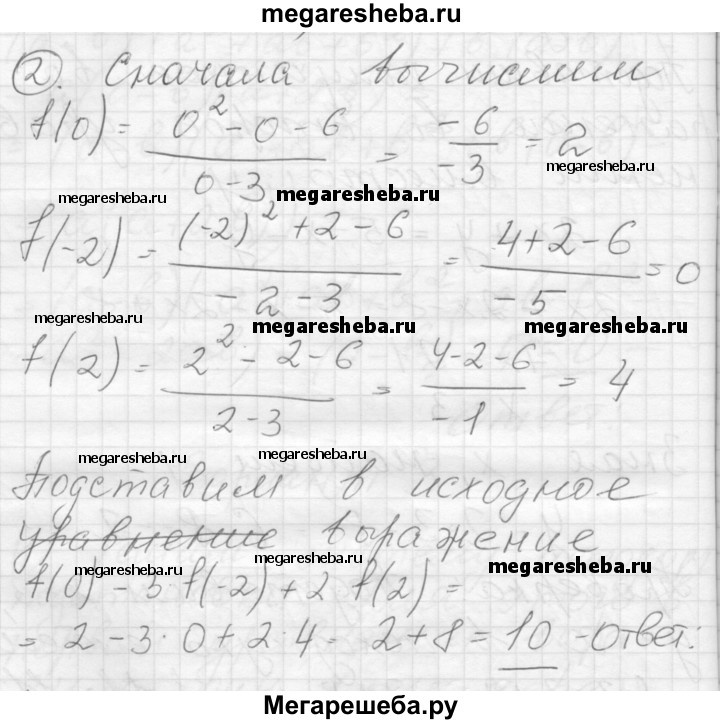 megaresheba.ru
②. Сначала вычислим
f(0) = (0² - 0 - 6)/(0 - 3) = (-6)/(-3) = 2
megaresheba.ru
megaresheba.ru megaresheba.ru
f(-2) = ((-2)² + 2 - 6)/(-2 - 3) = (4 + 2 - 6)/(-5) = 0
megaresheba.ru megaresheba.ru megaresheba.ru
f(2) = (2² - 2 - 6)/(2 - 3) = (4 - 2 - 6)/(-1) = 4
megaresheba.ru megaresheba.ru
Подставим в исходное
уравнение выражение
megaresheba.ru megaresheba.ru
f(0) - 3 · f(-2) + 2 · f(2) =
= 2 - 3 · 0 + 2 · 4 = 2 + 8 = 10 - Ответ:
megaresheba.ru megaresheba.ru
Мегарешеба.ру